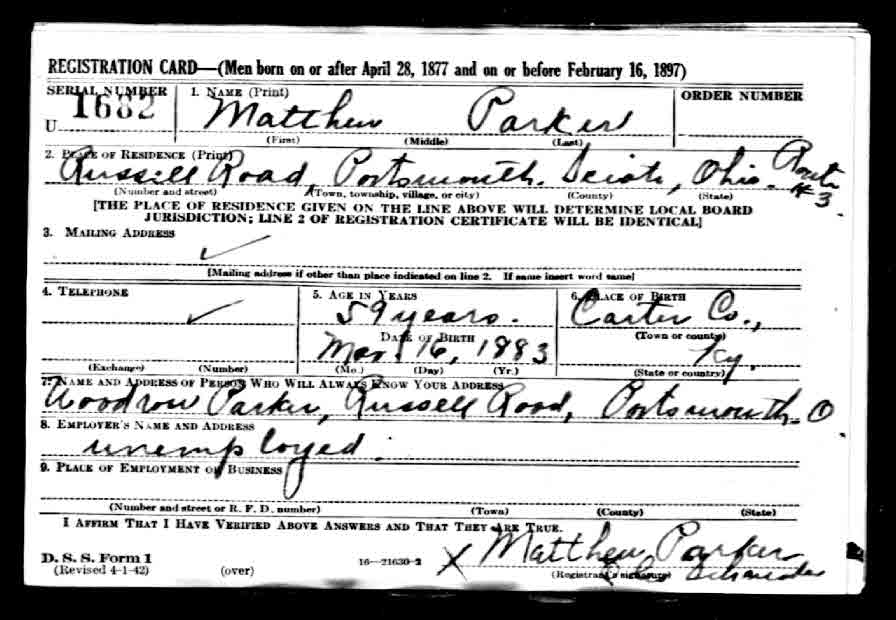 REGISTRATION CARD—(Men born on or after April 28, 1877 and on or before February 16, 1897)
SERIAL NUMBER 1. NAME (Print) ORDER NUMBER
U 1682 Matthew Parker
(First) (Middle) (Last)
2. PLACE OF RESIDENCE (Print)
Russell Road Portsmouth. Scioto, Ohio. Route #3.
(Number and street) (Town, township, village, or city) (County) (State)
[THE PLACE OF RESIDENCE GIVEN ON THE LINE ABOVE WILL DETERMINE LOCAL BOARD
JURISDICTION; LINE 2 OF REGISTRATION CERTIFICATE WILL BE IDENTICAL]
3. MAILING ADDRESS
✓
[Mailing address if other than place indicated on line 2. If same insert word same]
4. TELEPHONE 5. AGE IN YEARS 6. PLACE OF BIRTH
✓ 59 years. Carter Co.,
DATE OF BIRTH (Town or county)
Mar. 16, 1883 Ky.
(Exchange) (Number) (Mo.) (Day) (Yr.) (State or country)
7. NAME AND ADDRESS OF PERSON WHO WILL ALWAYS KNOW YOUR ADDRESS
Woodrow Parker, Russell Road, Portsmouth. O.
8. EMPLOYER'S NAME AND ADDRESS
unemployed.
9. PLACE OF EMPLOYMENT OR BUSINESS
(Number and street or R. F. D. number) (Town) (County) (State)
I AFFIRM THAT I HAVE VERIFIED ABOVE ANSWERS AND THAT THEY ARE TRUE.
D. S. S. Form 1 X Matthew Parker
(Revised 4-1-42) (over) 16—21630-2 (Registrant's signature)